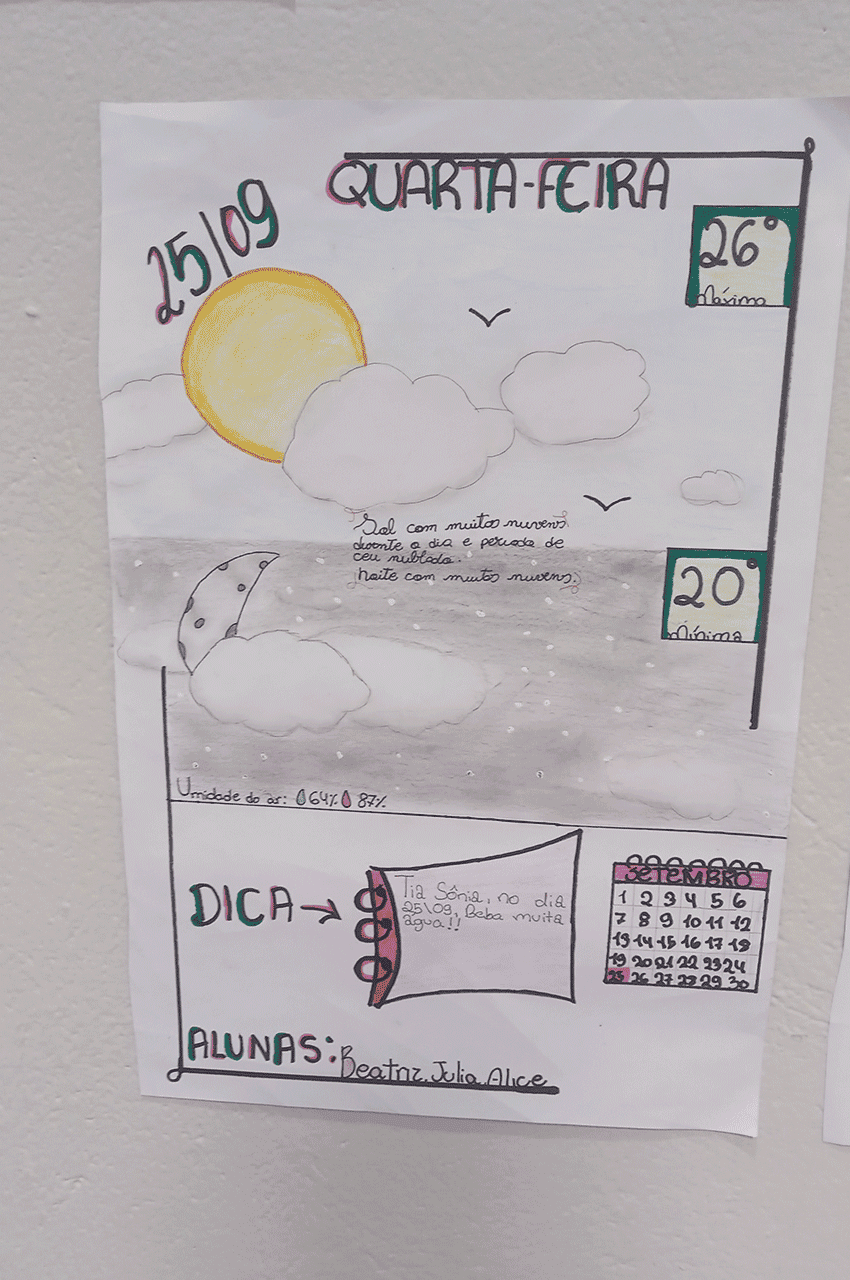 QUARTA-FEIRA
25/09
26°
Máxima
Sol com muitas nuvens
durante o dia e período de
ceu nublado.
Noite com muitas nuvens.
20°
Mínima
Umidade do ar: 64% 87%
DICA →
Tia Sônia, no dia
25\09, Beba muita
água!!
SETEMBRO
1 2 3 4 5 6
7 8 9 10 11 12
13 14 15 16 17 18
19 20 21 22 23 24
25 26 27 28 29 30
ALUNAS: Beatriz, Julia, Alice